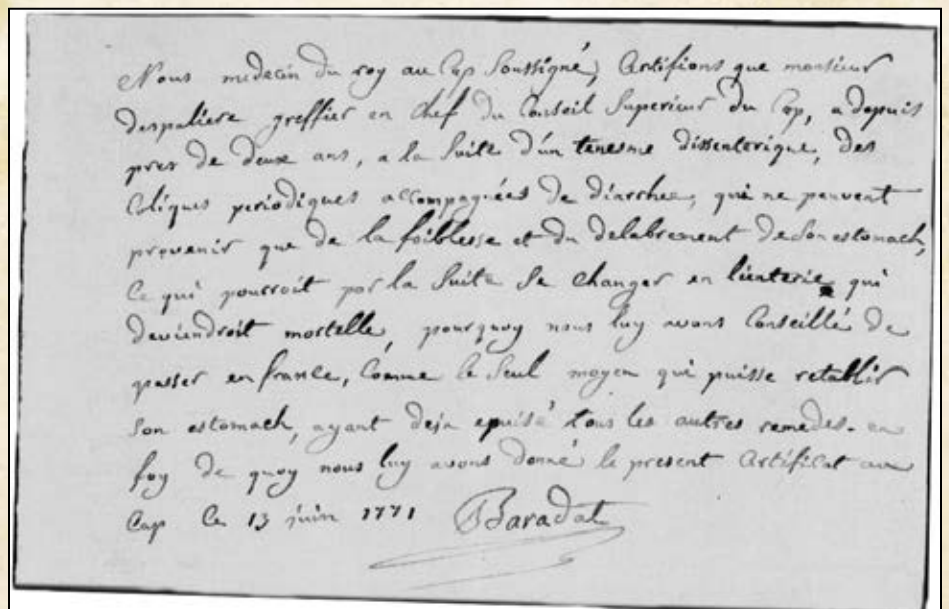 Nous medecin du roy au Cap Soussigné, Certifions que monsieur
despaliere greffier en Chef du Conseil Superieur du Cap, a depuis
pres de deux ans, a la Suite d'un tenesme dissenterique, des
Coliques periodiques accompagnées de diarrhée, qui ne peuvent
provenir que de la foiblesse et du delabrement de Son estomach,
Ce qui pourroit par la Suite Se changer en lienterie qui
deviendroit mortelle, pourquoy nous luy avons Conseillé de
passer en france, Comme le Seul moyen qui puisse retablir
Son estomach, ayant deja epuisé tous les autres remedes. en
foy de quoy nous luy avons donné le present Certificat au
Cap Ce 13 juin 1771 Baradat